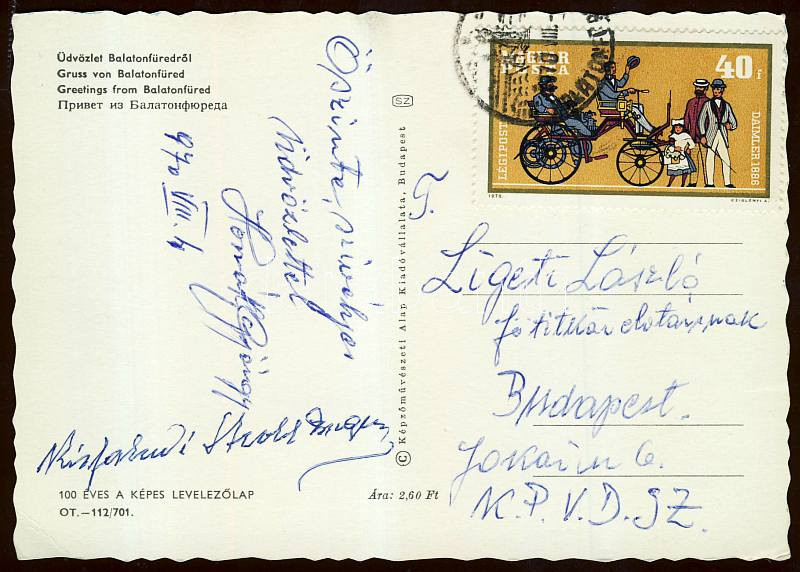 Üdvözlet Balatonfüredről
Gruss von Balatonfüred
Greetings from Balatonfüred
Привет из Балатонфюреда
Őszinte, szívélyes
üdvözlettel
György
970 VIII. 4
100 ÉVES A KÉPES LEVELEZŐLAP
OT.—112/701.
Ára: 2,60 Ft
© Képzőművészeti Alap Kiadóvállalata, Budapest
SZ
MAGYAR
POSTA
40 f
LÉGIPOSTA
DAIMLER 1886
1970
CZIGLÉNYI Á.
T.
Ligeti László
főtitkár elvtársnak
Budapest.
Jókai u 6.
K.P.V.D.SZ.